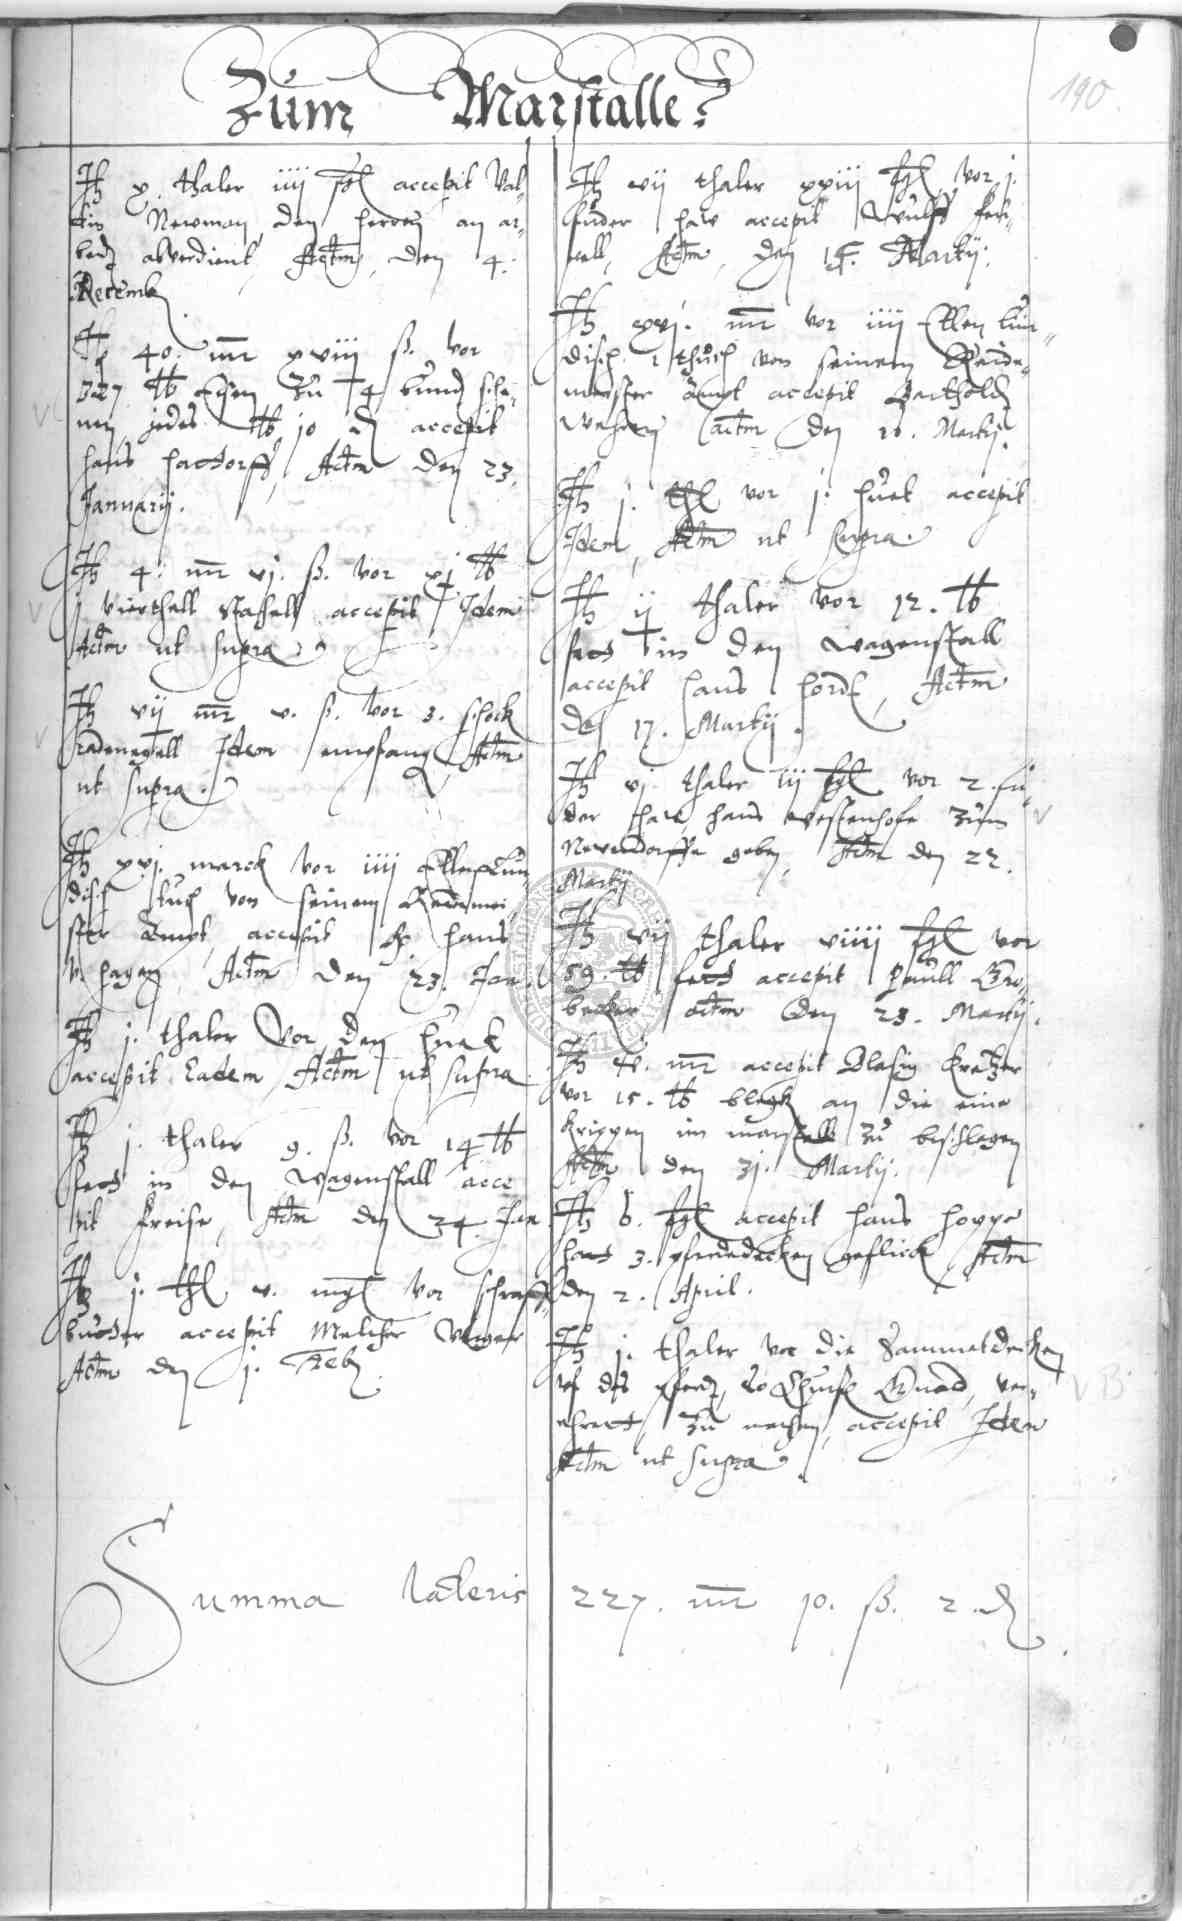 Zum Marstalle
190.
It x. thaler iiij ßgl accepit Val-
tin Newman, den herren an ar-
beid abverdient, Actm, den 4.
Decemb
It 40. mr xviij ß. vor
327 tb Eisen zu 4 bund sche-
nen jedes tb 10 d accepit
Hans Hattorff, Actm den 23.
Januarij.
It 4. mr vj. ß. vor xj tb
j vierthell Staffell accepit Idem
Actm ut supra
It vij mr v. ß. vor 3. schock
radenegell Idem empfang, Actm
ut supra.
It xvj. marck vor iiij Ellen Lun-
disch tuch von seinem Rentmei-
ster Ampt, accepit Hans
v. hagen, Actm den 23. Jan.
It j. thaler vor den huet
accepit Eadem Actm ut supra
It j. thaler 9. ß. vor 14 tb
fett in den wagenstall acce
pit Freise, Actm den 24. Jan
It j. thl v. mgl vor schraff
butter accepit Melcher
Actm den j. Feb
It vij thaler xxiij ßgl vor j.
fuder haw accepit Wulff
Actm, den 15. Martij.
It xvj. mr vor iiij Ellen Lun-
disch thuch von seinem Rende-
meister ampt accepit Barthold
actm den 10. Martij.
It j. thl vor j. huet accepit
Idem, Actm ut supra.
It ij thaler vor 12. tb
fett in den wagenstall
accepit Hans Hordt, Actm
den 17. Martij.
It vj thaler iij ßgl vor 2. fu-
der haw, hans Westenhofe zum
Newendorffe geben, Actm den 22.
Martij
It vij thaler viiij ßgl vor
59. tb fett accepit Paull
becker actm den 23. Martij.
It mr accepit Blasig Kratzer
vor 15. tb blegk an die eine
krippen im marstall zu beschlagen
Actm den 31. Martij.
It 6. ßgl accepit Hans Hoppe
hatt 3. pferdedecken geflickt, Actm
den 2. April.
It j. thaler vor die Sammetdecken
uf des pferd, so Quad, ver-
ehrett, zu machen, accepit Idem
Actm ut supra.
Summa lateris 227. mr 10. ß. 2. d